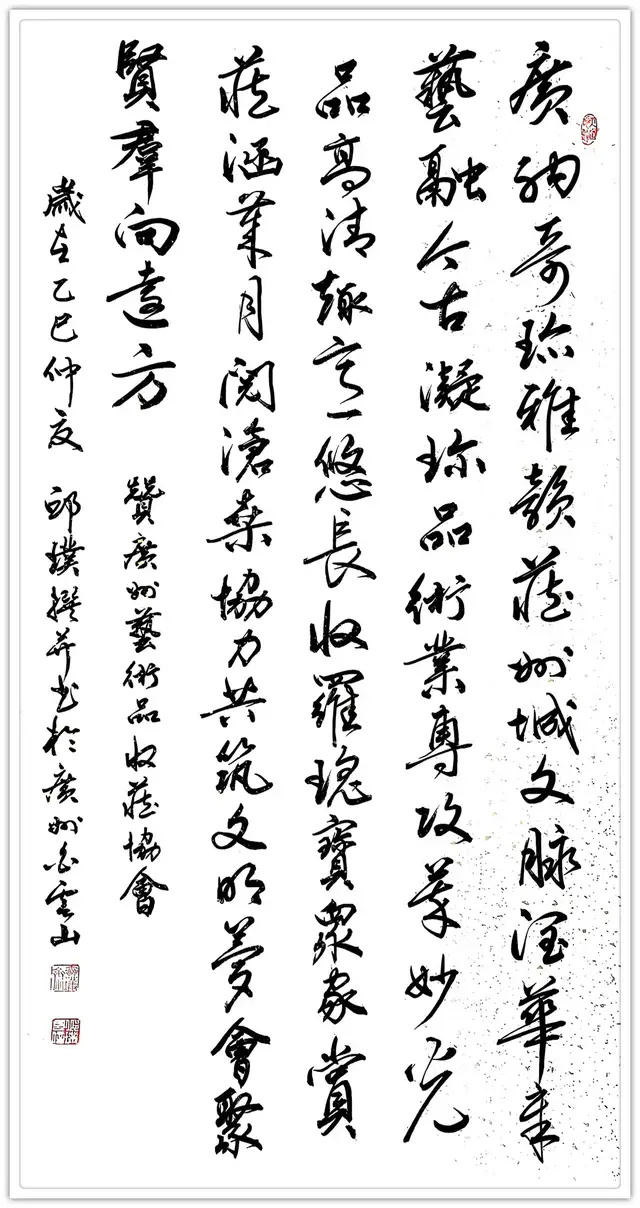 廣納奇珍雅韻藏州城文脈華章
藝融今古凝珍品術業專攻萃妙光
品高清趣悠長收羅瑰寶眾家賞
藏涵月閱滄桑協力共筑文明夢會聚
賢羣向遠方
贊廣州藝術品收藏協會
歲在乙巳仲夏 邱璞撰并书於廣州白雲山